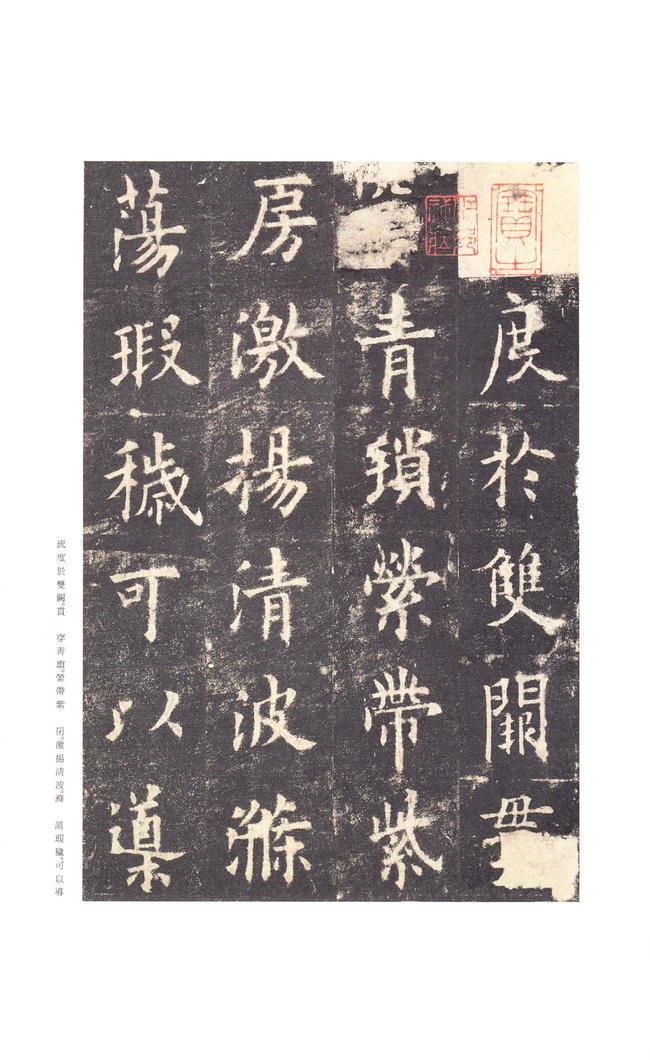 度於雙闕
青鎖縈帶紫
房激揚清波滌
蕩瑕穢可以導
流度於雙闕。貫 穿青瑣。縈帶紫 房。激揚清波。滌 蕩瑕穢。可以導